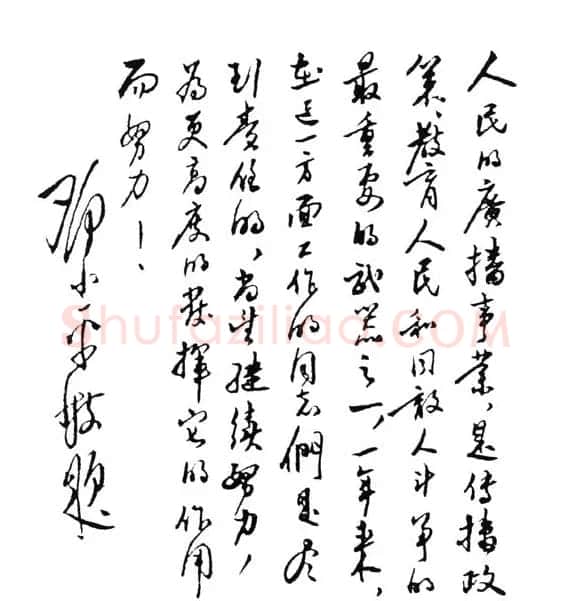 人民的廣播事業，是传播政
策、教育人民和同敌人斗争的
最重要的武器之一，一年来，
在这一方面工作的同志們是尽
到责任的，尚望继續努力，
為更高度的發揮它的作用
而努力！
邓小平敬题
Shufaziliao.COM